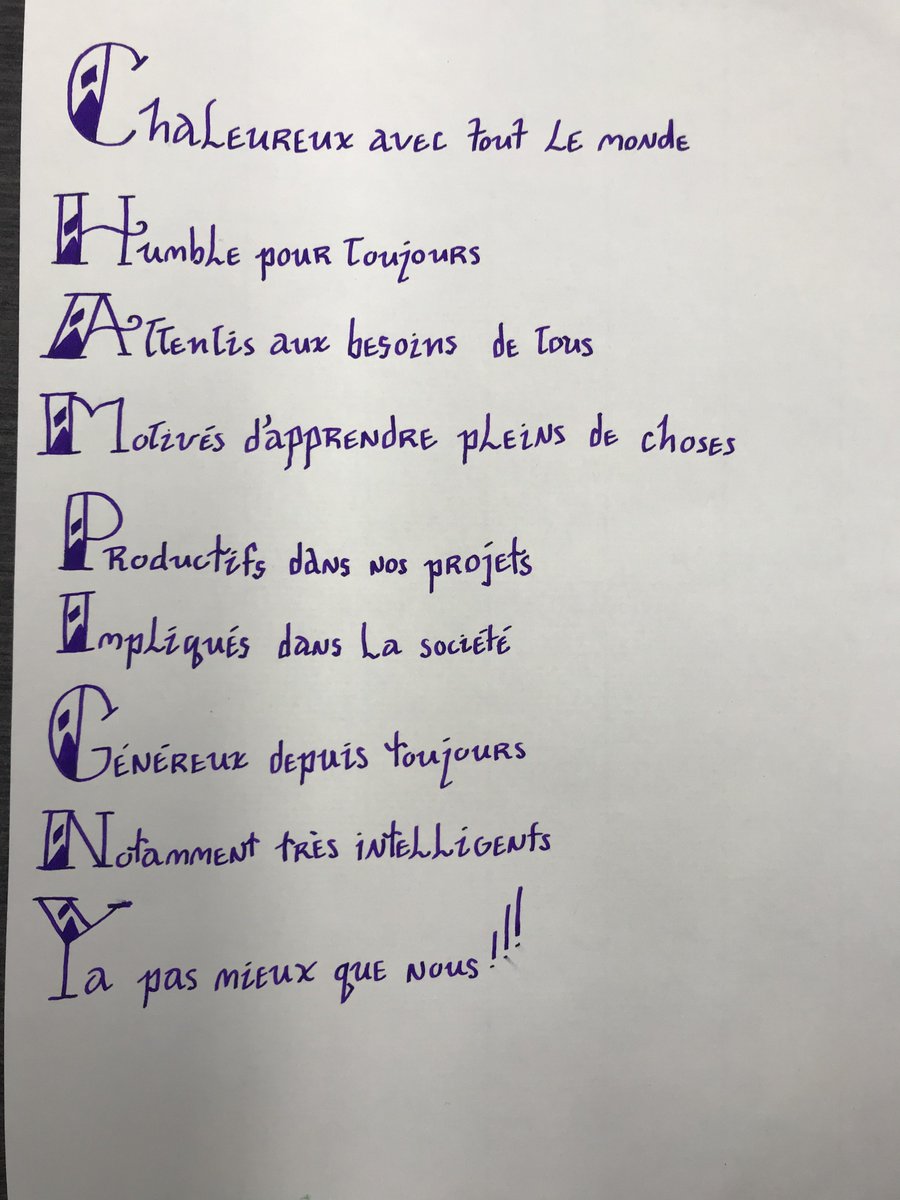 Chaleureux avec tout le monde
Humble pour toujours
Attentis aux besoins de tous
Motivés d'apprendre pleins de choses
Productifs dans nos projets
Impliqués dans la société
Généreux depuis toujours
Notamment très intelligents
Ya pas mieux que nous!!!